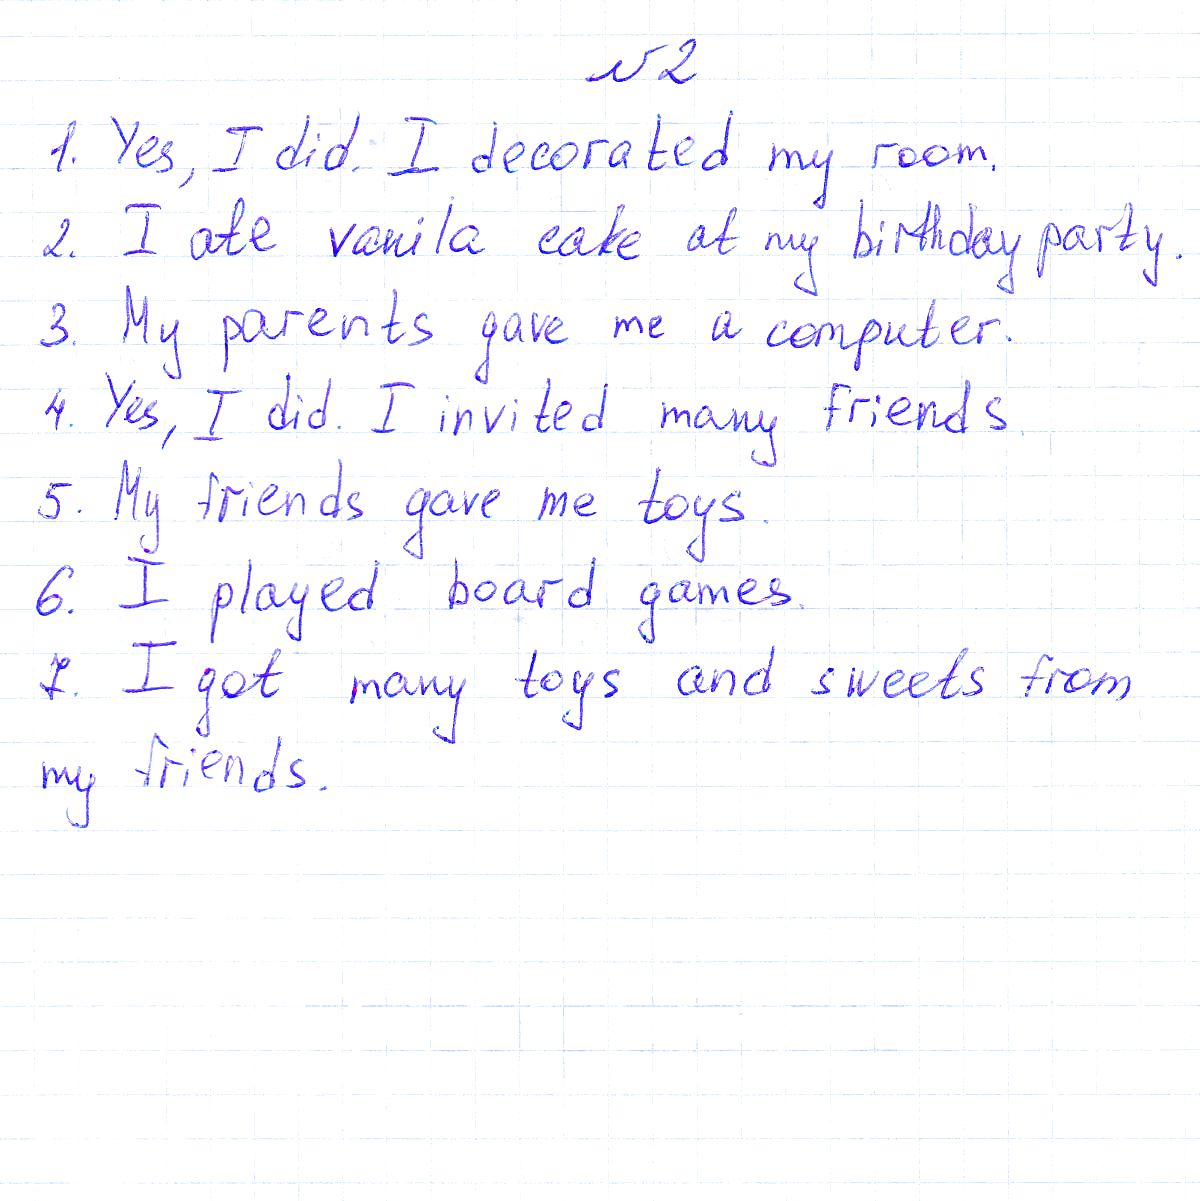 №2
1. Yes, I did. I decorated my room.
2. I ate vanila cake at my birthday party.
3. My parents gave me a computer.
4. Yes, I did. I invited many friends.
5. My friends gave me toys.
6. I played board games.
7. I got many toys and sweets from
my friends.